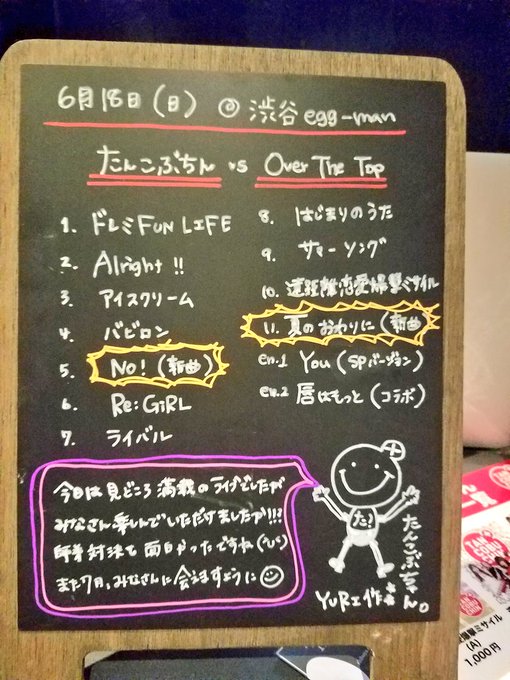 6月18日(日) @ 渋谷 egg-man
たんこぶちん vs Over The Top
1. ドレミFUN LIFE
2. Alright !!
3. アイスクリーム
4. バビロン
5. No! (新曲)
6. Re:GiRL
7. ライバル
8. はじまりのうた
9. サマーソング
10. 遠距離恋愛爆撃ミサイル
11. 夏のおわりに (新曲)
en.1 You (SPバージョン)
en.2 唇はもっと (コラボ)
今日は見どころ満載のライブでしたが
みなさん楽しんでいただけましたか!!!
対決も面白かったですね(^^)
また7月、みなさんに会えますように
た!
たんこぶちゃん。
YURI作
爆撃ミサイル
(A)
1,000円